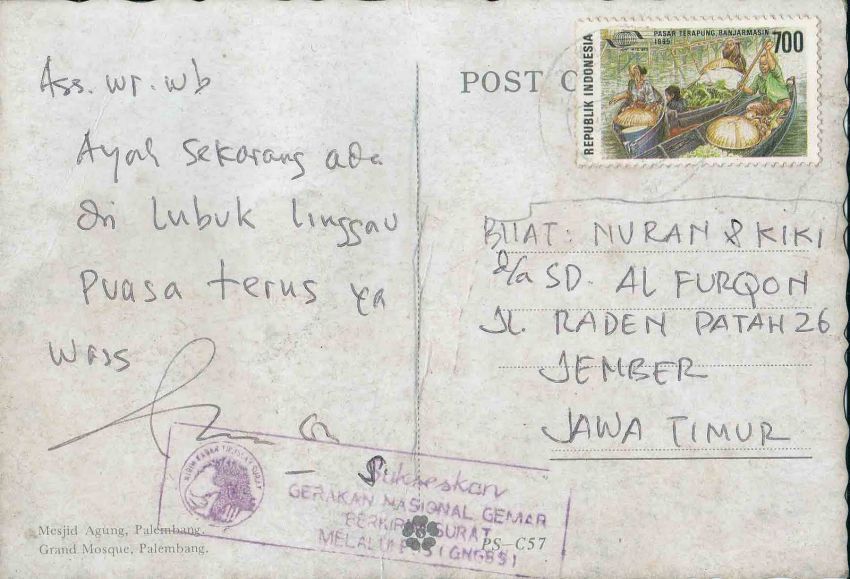 Ass. wr. wb
Ayah sekarang ada
di Lubuk linggau
Puasa terus ya
Wass
Mesjid Agung, Palembang.
Grand Mosque, Palembang.
POST C
REPUBLIK INDONESIA
PASAR TERAPUNG, BANJARMASIN
1995
700
BUAT: NURAN & KIKI
d/a SD. AL FURQON
Jl. RADEN PATAH 26
JEMBER
JAWA TIMUR
Sukseskan
GERAKAN NASIONAL GEMAR
BERKIRIM SURAT
MELALUI
PS—C57